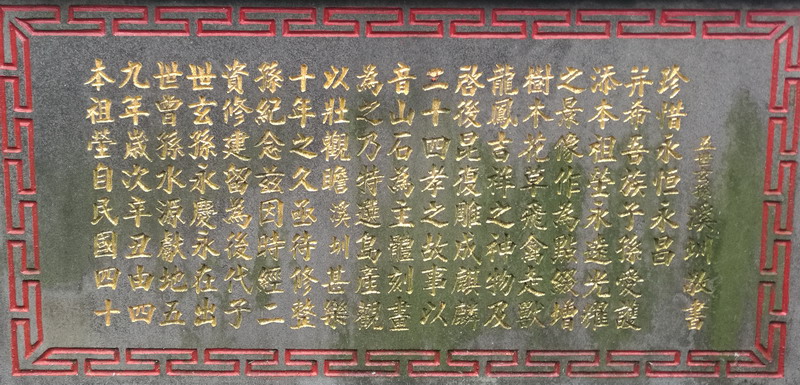 本祖塋自民國四十
九年歲次辛丑由四
世曾孫水源獻地五
世玄孫永慶永在出
資修建留為後代子
孫紀念茲因時經二
十年之久亟待修整
以壯觀瞻溪圳甚樂
為之乃特選島產觀
音山石為主體刻畫
二十四孝之故事以
啓後昆復雕成麒麟
龍鳳吉祥之神物及
樹木花草飛禽走獸
之景像作為點綴增
添本祖塋永遠光耀
并希吾族子孫愛護
珍惜永恒永昌
溪圳敬書